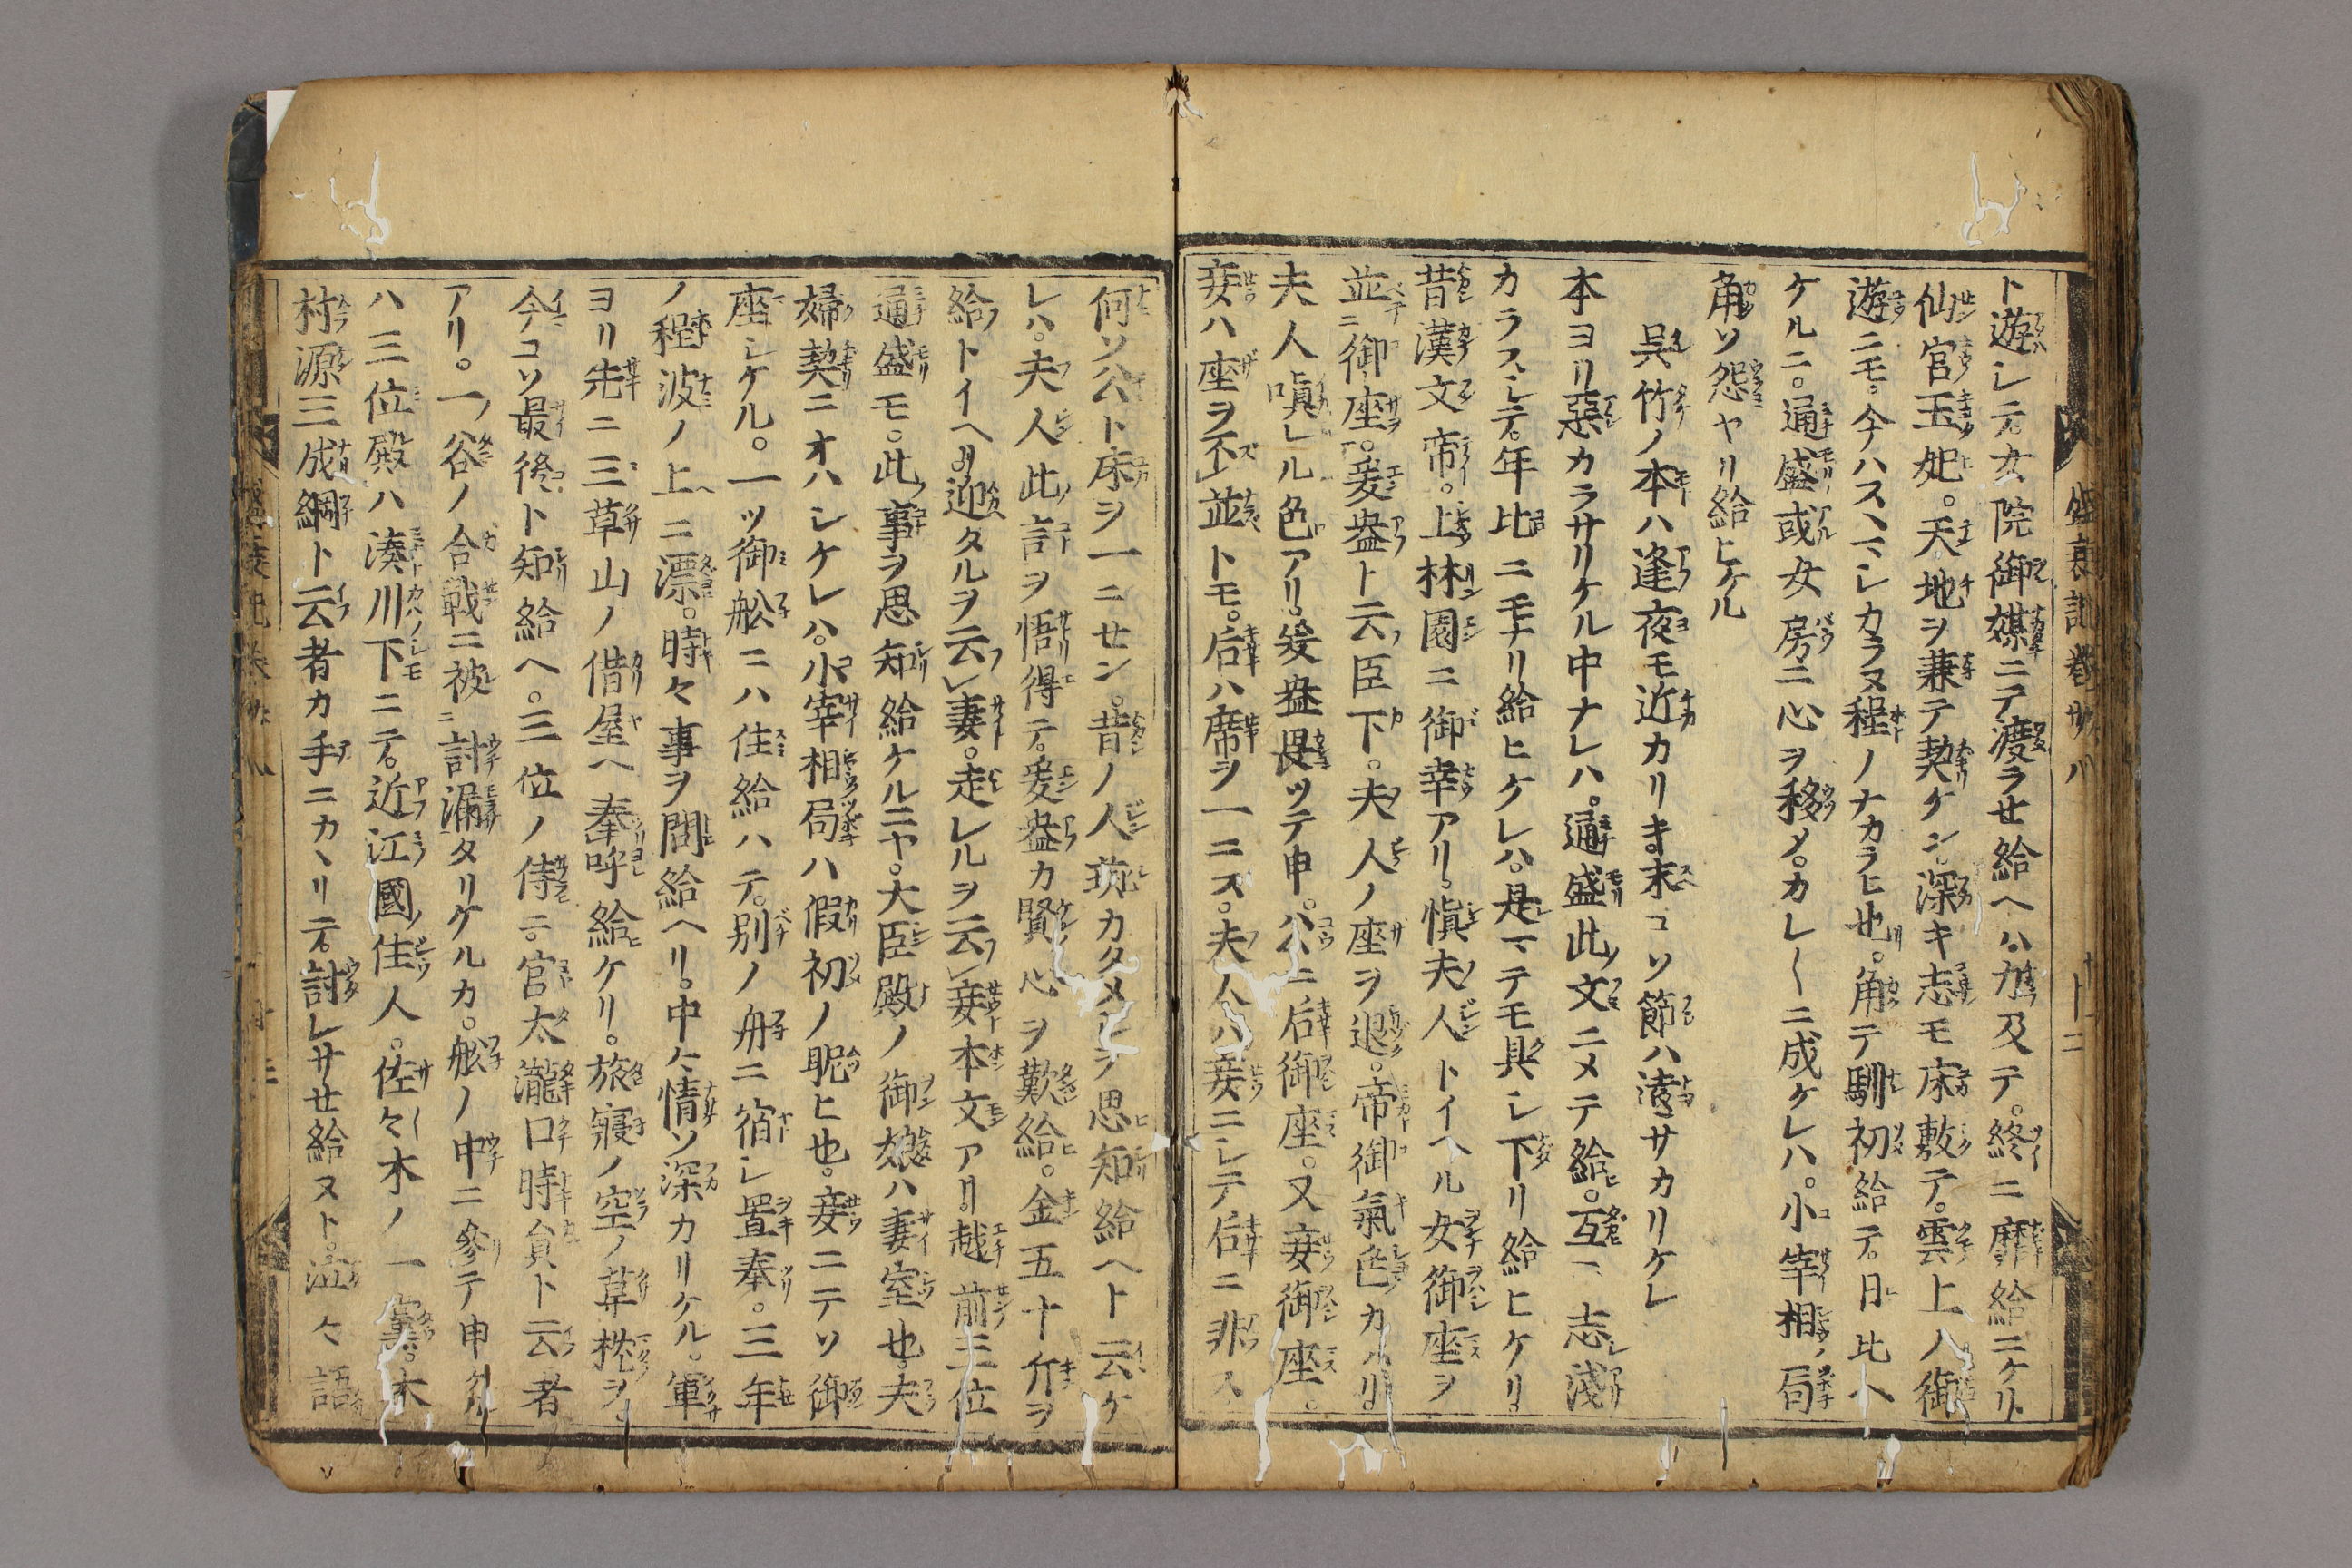 ト遊シテ。女院御媒ニテ渡ラセ給ヘハ。力及テ。終ニ靡給ニケリ。
仙宮玉妃。天地ヲ兼テ契ケン。深キ志モ床敷テ。雲上人御
遊ニモ。今ハスヽマシカラヌ程ノナカラヒ也。角テ馴初給テ。日比ヘ
ケルニ。通盛或女房ニ心ヲ移メ。カレ〱ニ成ケレハ。小宰相ノ局
角ソ怨ヤリ給ヒケル
呉竹ノ本ハ逢夜モ近カリキ末コソ節ハ遠サカリケレ
本ヨリ惡カラサリケル中ナレハ。通盛此文ニメテ給。互ニ志淺
カラスシテ。年比ニモナリ給ヒケレハ。是マテモ具シ下リ給ヒケリ。
昔漢文帝。上林園ニ御幸アリ。愼夫人トイヘル女御座ヲ
並ニ御座。爰盎ト云臣下。夫人ノ座ヲ退。帝御氣色カハリ。
夫人嗔レル色アリ。爰盎畏ツテ申。公ニ后御座。又妾御座。
妾ハ座ヲ不並トモ。后ハ席ヲ一ニス。夫人ハ妾ニシテ后ニ非ス
何ソ公ト床ヲ一ニセン。昔ノ人カタメヒテ思知給ヘト云ケ
レハ。夫人此言ヲ悟得テ。爰盎カ賢心ヲ歎給ヒ。金五十斤ヲ
給トイヘリ。迎タルヲ云妻。走レルヲ云妾本文アリ。越前三位
通盛モ。此事ヲ思知給ケルニヤ。大臣殿ノ御娘ハ妻室也。夫
婦契ニオハシケレハ。小宰相局ハ假初ノ眤ヒ也。妾ニテソ御
座シケル。一ツ御舩ニハ住給ハテ。別ノ舟ニ宿シ置奉。三年
ノ程波ノ上ニ漂。時々事ヲ問給ヘリ。中々情ソ深カリケル。軍
ヨリ先ニ三草山ノ借屋ヘ奉呼給ケリ。旅寢ノ空ノ草枕ヲ。
今コソ最後ト知給ヘ。三位ノ侍ニ。宮太瀧口時員ト云者
アリ。一ノ谷ノ合戰ニ被討漏タリケルカ。舩ノ中ニ參テ申ケル
ハ三位殿ハ湊川下ニテ。近江國ノ住人。佐々木ノ一黨。木
村源三成綱ト云者カ手ニカヽリテ。討レサセ給ヌト。泣々語
盛衰記巻卅八 十二